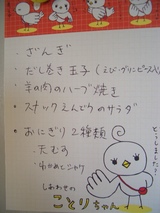 ・ざんぎ
・だし巻き玉子(えび・グリンピース入)
・羊の肉のハーブ焼き
・スナックえんどうのサラダ
・おにぎり2種類
・天むす
・わかめとジャコ
とっしました!
しあわせの
ことりちゃん